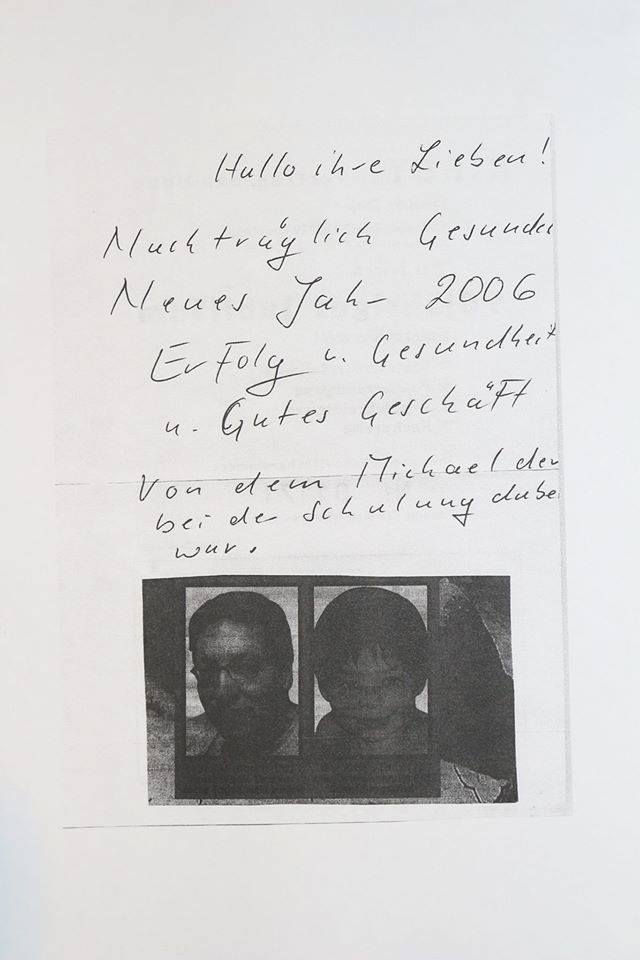 Hallo ihre Lieben!
Nachträglich Gesunde
Neues Jahr 2006
Erfolg u. Gesundheit
u. Gutes Geschäft
Von dem Michael der
bei der Schulung dabei
war.